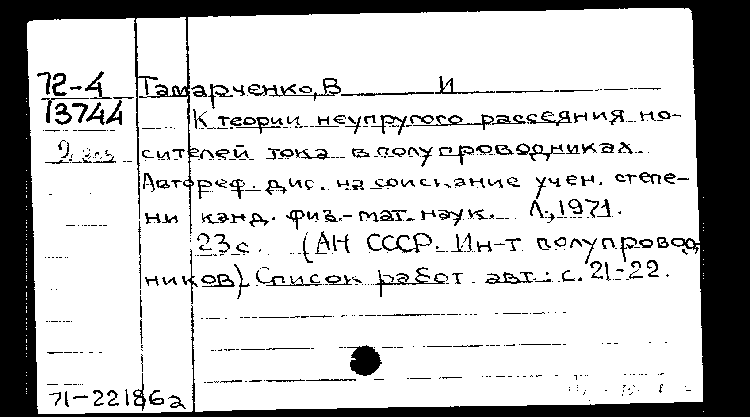 72-4 Тамарченко, В И
13744 К теории неупругого рассеяния но-
2 экз сителей тока в полупроводниках.
Автореф. дис. на соискание учен. степе-
ни канд. физ.-мат. наук. Л., 1971.
23 с. (АН СССР. Ин-т полупровод
ников). Список работ авт.: с. 21-22.
71-22186а